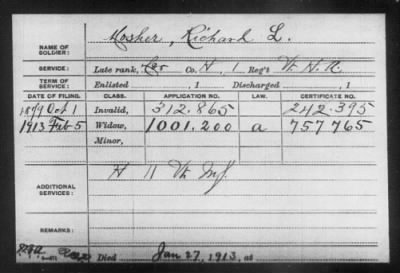 NAME OF SOLDIER: Mosher, Richard L.
SERVICE: Late rank, Co. H, 1 Reg't Vt H. A.
TERM OF SERVICE: Enlisted , 1 Discharged , 1
DATE OF FILING. CLASS. APPLICATION NO. LAW. CERTIFICATE NO.
1879 Oct 1 Invalid, 312.865 242.395
1913 Feb 5 Widow, 1001.200 a 757765
Minor,
ADDITIONAL SERVICES: H 11 Vt Inf.
REMARKS:
Died Jan 27, 1913, at